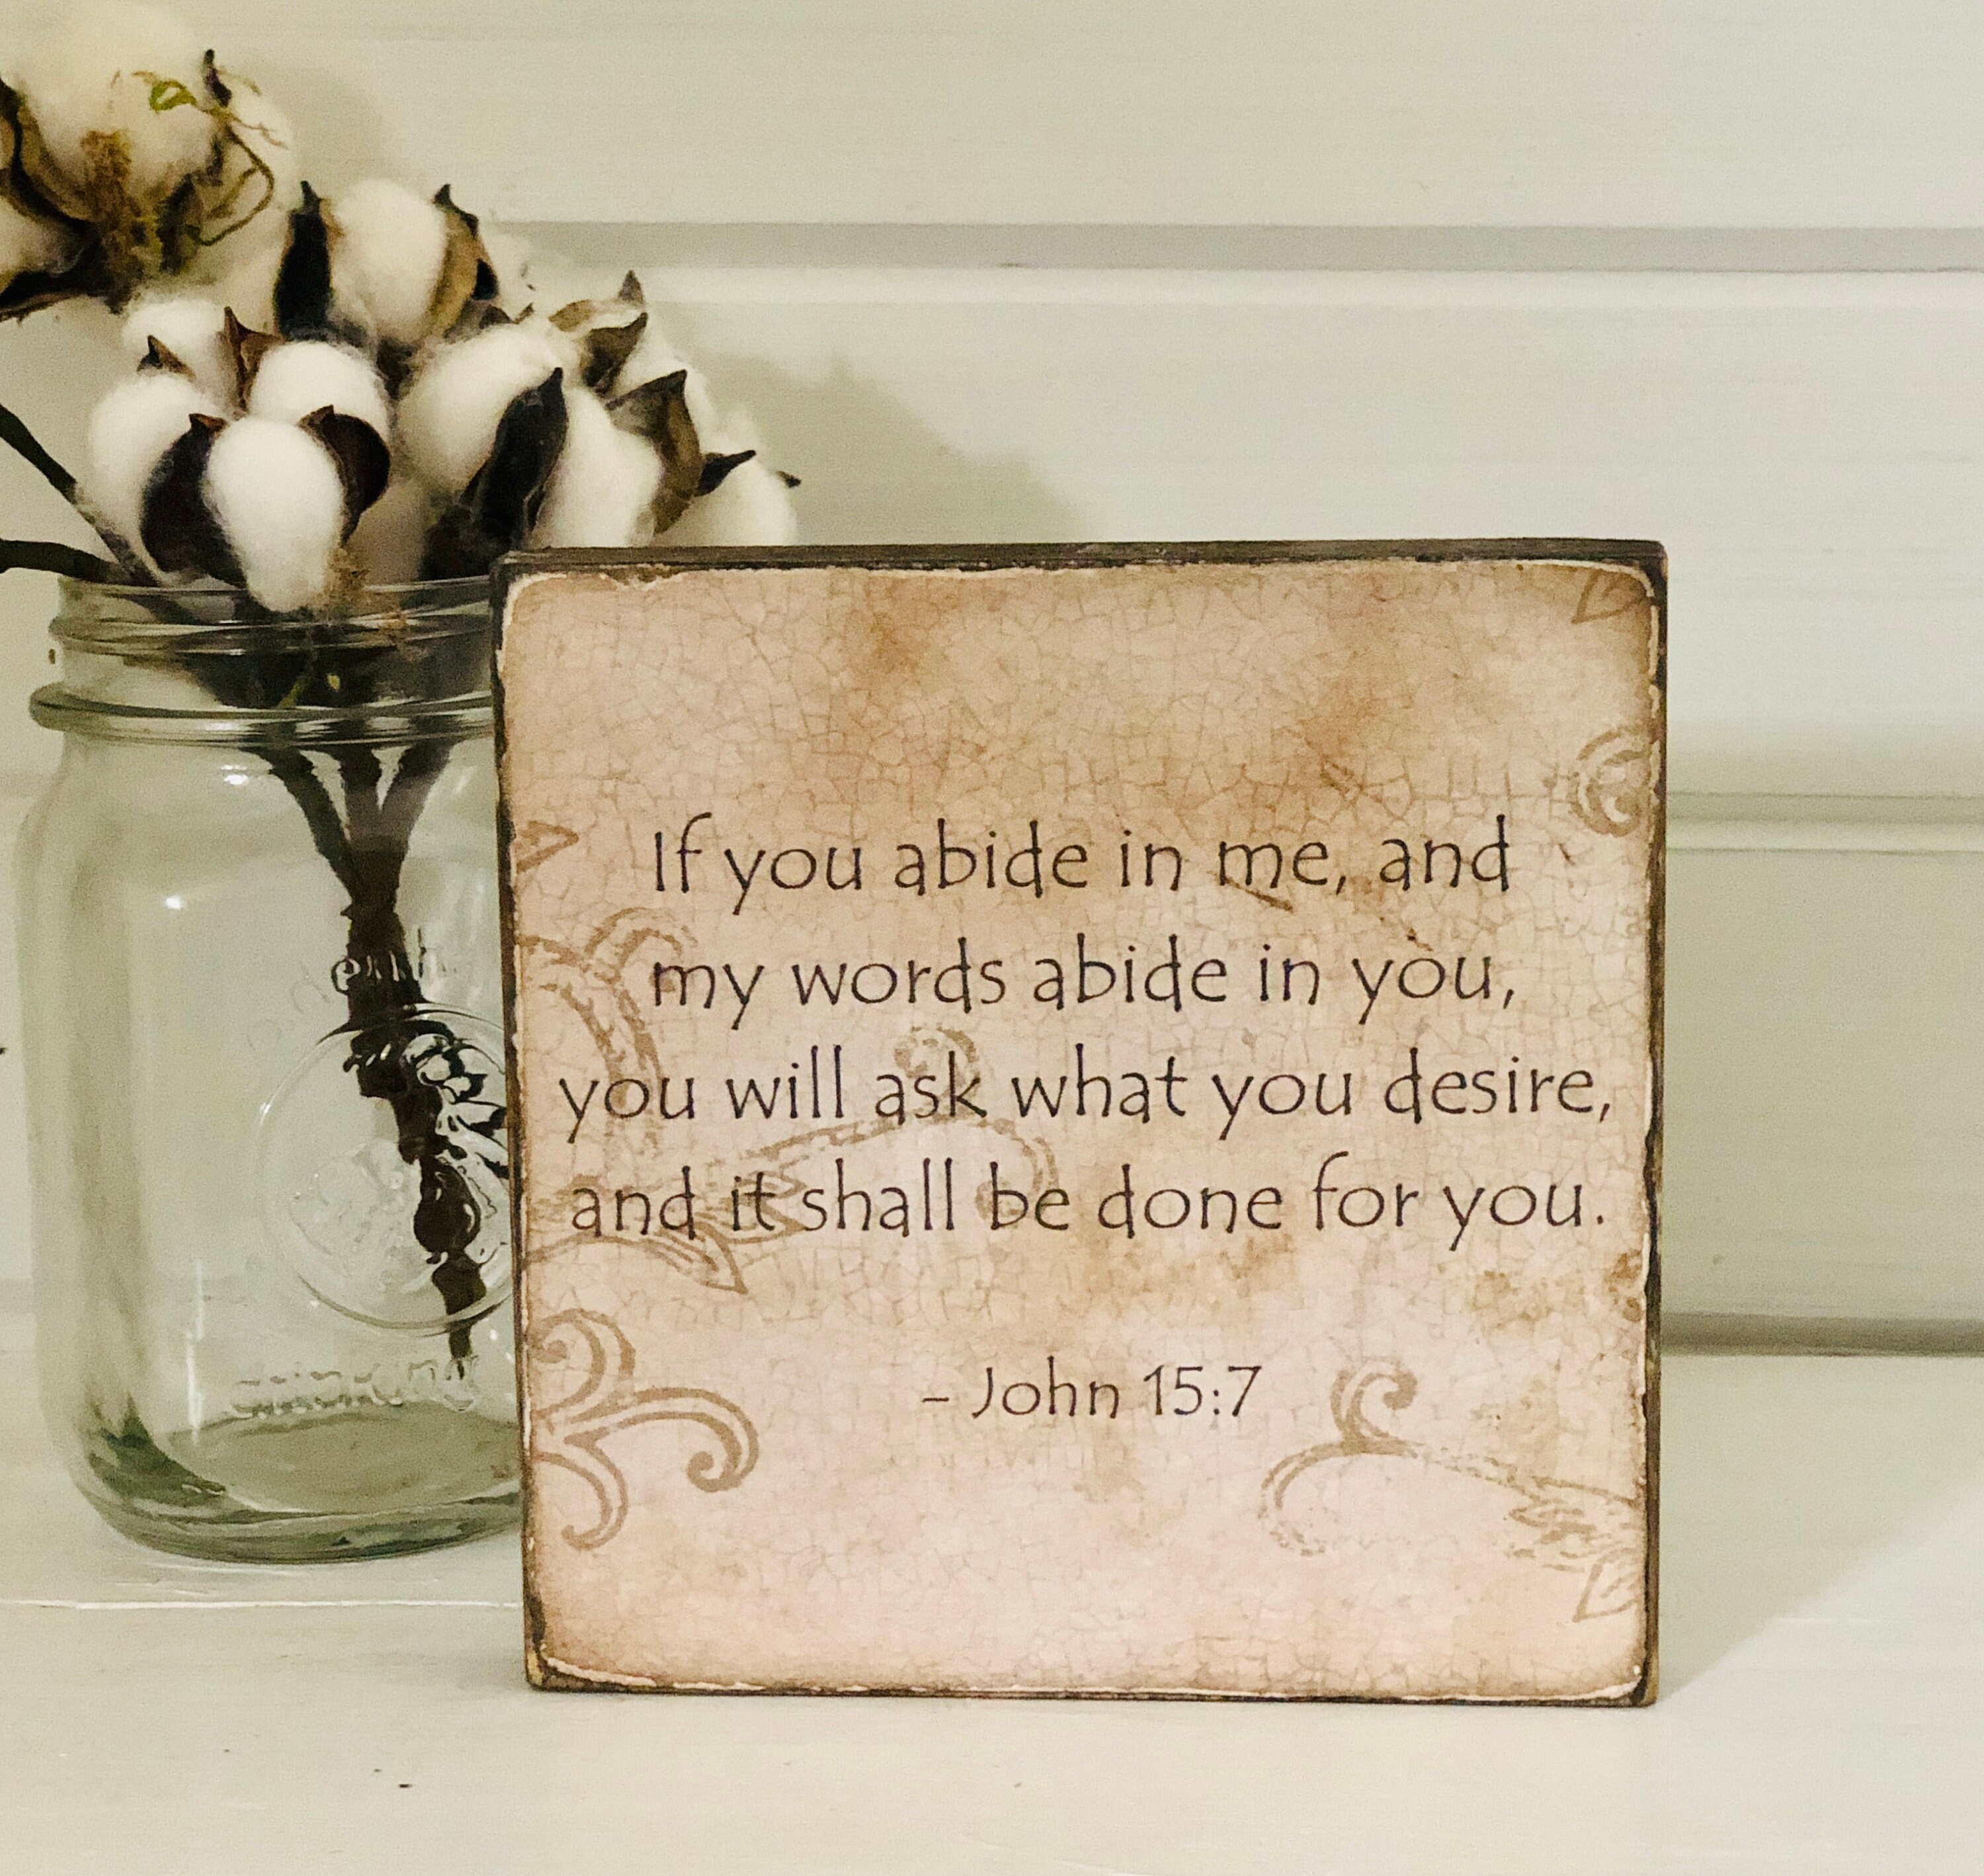 If you abide in me, and
my words abide in you,
you will ask what you desire,
and it shall be done for you.
– John 15:7